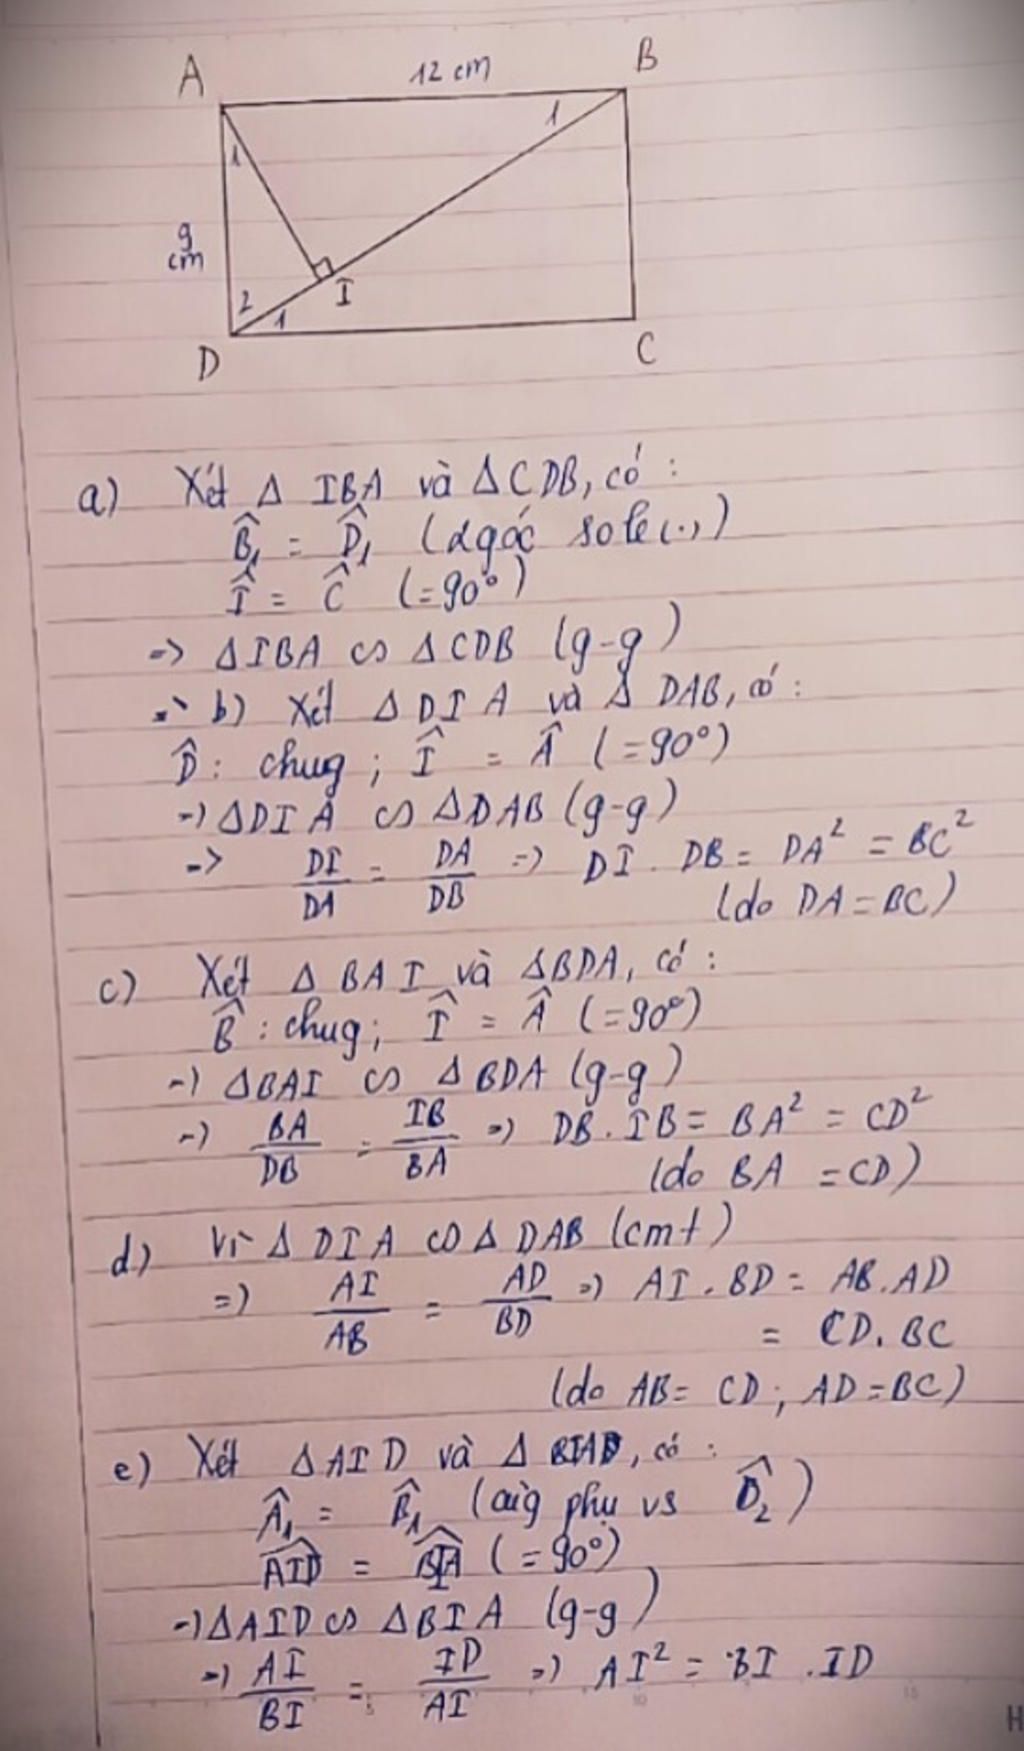 A 12 cm B
1 1
9
cm
2 1 I
D C
a) Xét Δ IBA và Δ CDB, có :
B̂₁ = D̂₁ (2góc sole (..)
Î = Ĉ (=90°)
=> Δ IBA ∽ Δ CDB (g-g)
b) Xét Δ DIA và Δ DAB, có :
D̂ : chug ; Î = Â (=90°)
=> Δ DIA ∽ Δ DAB (g-g)
=> DI/DA = DA/DB => DI . DB = DA² = BC²
(do DA = BC)
c) Xét Δ BAI và Δ BDA, có :
B̂ : chug ; Î = Â (=90°)
=> Δ BAI ∽ Δ BDA (g-g)
=> BA/DB = IB/BA => DB . IB = BA² = CD²
(do BA = CD)
d) Vì Δ DIA ∽ Δ DAB (cmt)
=> AI/AB = AD/BD => AI . BD = AB . AD
= CD . BC
(do AB = CD ; AD = BC)
e) Xét Δ AID và Δ BIA, có :
Â₁ = B̂₁ (cùg phụ vs D̂₂)
AID = BIA (=90°)
=> Δ AID ∽ Δ BIA (g-g)
=> AI/BI = ID/AI => AI² = BI . ID
5 10 15
H